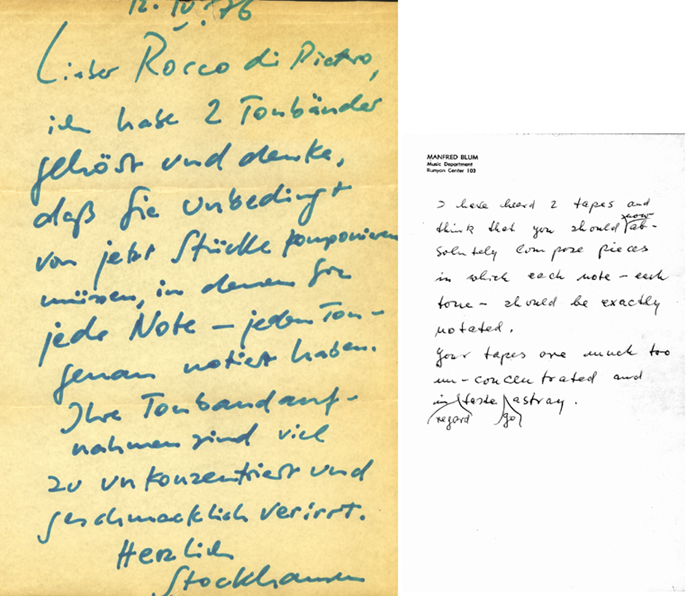 12. IV. 76
Lieber Rocco di Pietro,
ich habe 2 Tonbänder
gehört und denke,
daß Sie unbedingt
von jetzt Stücke komponieren
müssen, in denen Sie
jede Note – jeden Ton –
genau notiert haben.
Ihre Tonbandauf-
nahmen sind viel
zu unkonzentriert und
geschmacklich verirrt.
Herzlich
Stockhausen
MANFRED BLUM
Music Department
Runyon Center 103
I have heard 2 tapes and
think that you should now ab-
solutely compose pieces
in which each note – each
tone – should be exactly
notated.
Your tapes are much too
un-concentrated and
in taste astray.
regard go